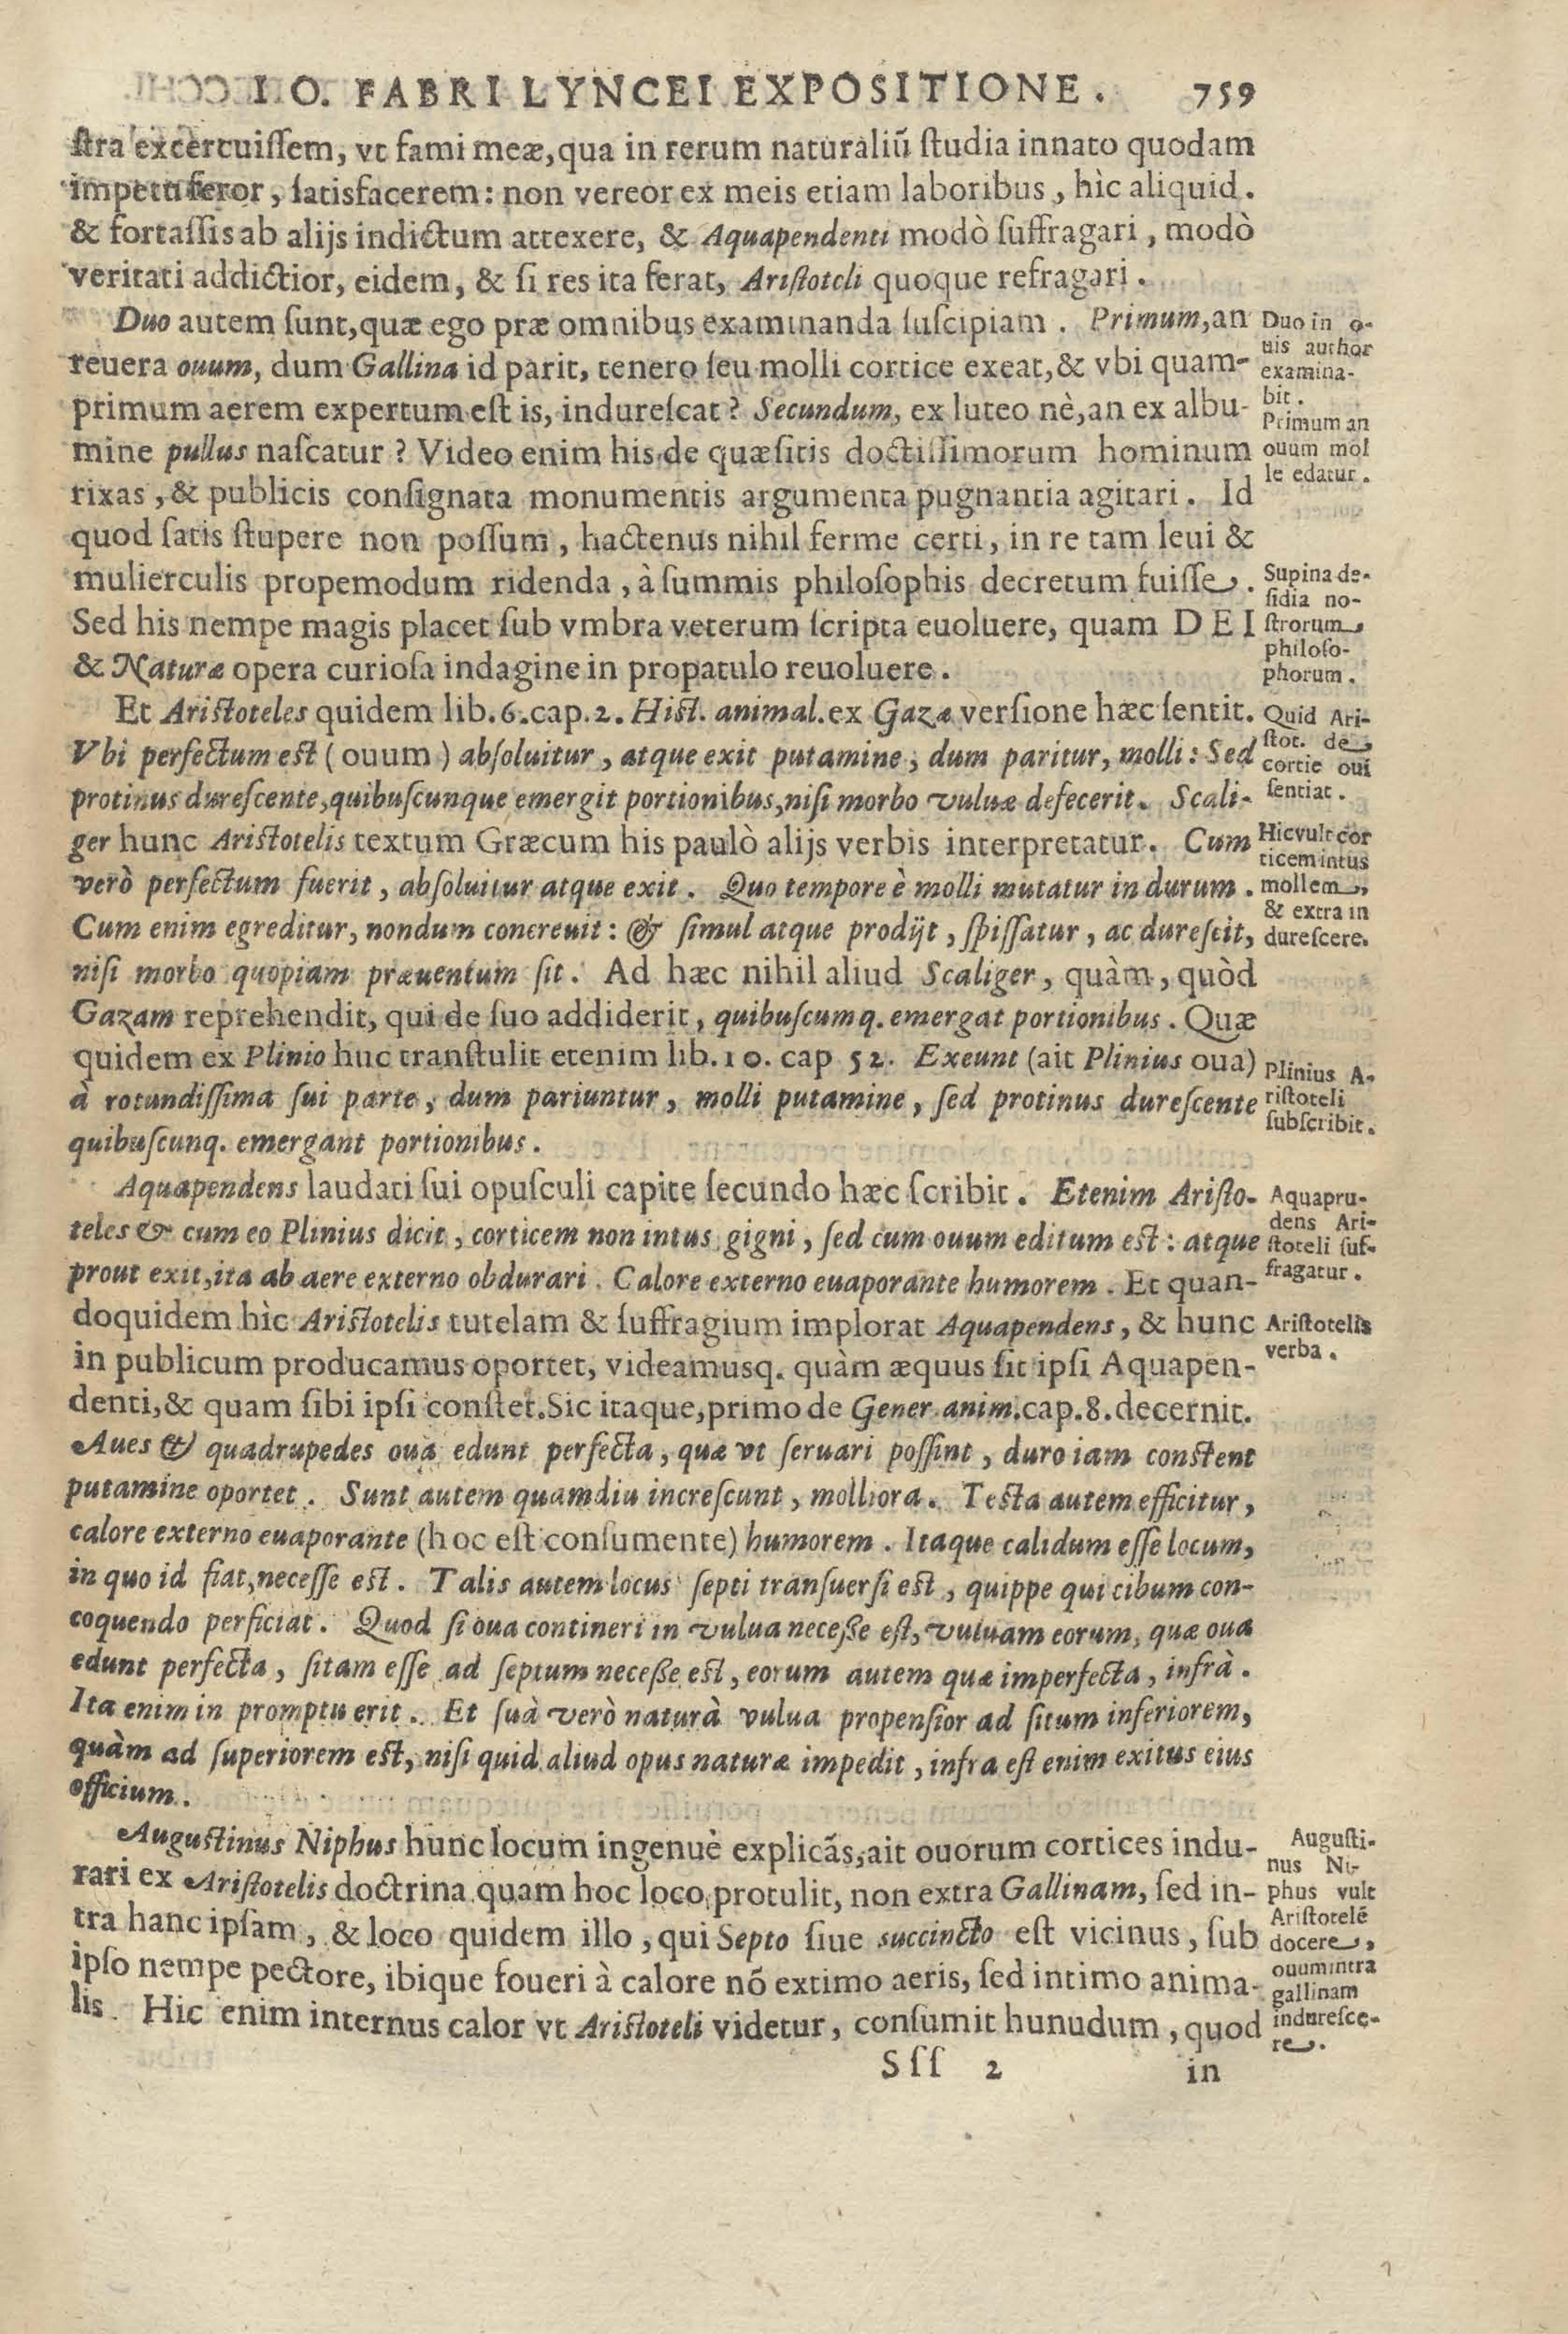 IO. FABRI LYNCEI EXPOSITIONE. 759
ſtra excercuiſſem, vt fami meæ, qua in rerum naturaliũ ſtudia innato quodam
impetu feror, ſatisfacerem: non vereor ex meis etiam laboribus, hìc aliquid.
& fortaſſis ab alijs indictum attexere, & Aquapendenti modò ſuffragari, modò
veritati addictior, eidem, & ſi res ita ferat, Ariſtoteli quoque refragari.
Duo autem ſunt, quæ ego præ omnibus examinanda ſuſcipiam. Primum, an
reuera ouum, dum Gallina id parit, tenero ſeu molli cortice exeat, & vbi quam-
primum aerem expertum eſt is, indureſcat? Secundum, ex luteo nè, an ex albu-
mine pullus naſcatur? Video enim his de quæſitis doctiſſimorum hominum
rixas, & publicis conſignata monumentis argumenta pugnantia agitari. Id
quod ſatis ſtupere non poſſum, hactenus nihil ferme certi, in re tam leui &
mulierculis propemodum ridenda, à ſummis philoſophis decretum fuiſſe.
Sed his nempe magis placet ſub vmbra veterum ſcripta euoluere, quam DEI
& Naturæ opera curioſa indagine in propatulo reuoluere.
Et Ariſtoteles quidem lib. 6. cap. 2. Hiſt. animal. ex Gazæ verſione hæc ſentit.
Vbi perfectum eſt (ouum) abſoluitur, atque exit putamine, dum paritur, molli: Sed
protinus dureſcente, quibuſcunque emergit portionibus, niſi morbo vuluæ defecerit. Scali-
ger hunc Ariſtotelis textum Græcum his paulò alijs verbis interpretatur. Cum
verò perfectum fuerit, abſoluitur atque exit. Quo tempore è molli mutatur in durum.
Cum enim egreditur, nondum concreuit: & ſimul atque prodijt, ſpiſſatur, ac dureſcit,
niſi morbo quopiam præuentum ſit. Ad hæc nihil aliud Scaliger, quàm, quòd
Gazam reprehendit, qui de ſuo addiderit, quibuſcumq. emergat portionibus. Quæ
quidem ex Plinio huc tranſtulit etenim lib. 10. cap 52. Exeunt (ait Plinius oua)
à rotundiſſima ſui parte, dum pariuntur, molli putamine, ſed protinus dureſcente
quibuſcunq. emergant portionibus.
Aquapendens laudati ſui opuſculi capite ſecundo hæc ſcribit. Etenim Ariſto-
teles & cum eo Plinius dicit, corticem non intus gigni, ſed cum ouum editum eſt: atque
prout exit, ita ab aere externo obdurari. Calore externo euaporante humorem. Et quan-
doquidem hìc Ariſtotelis tutelam & ſuffragium implorat Aquapendens, & hunc
in publicum producamus oportet, videamusq. quàm æquus ſit ipſi Aquapen-
denti, & quam ſibi ipſi conſtet. Sic itaque, primo de Gener. anim. cap. 8. decernit.
Aues & quadrupedes oua edunt perfecta, quæ vt ſeruari poſſint, duro iam conſtent
putamine oportet. Sunt autem quamdiu increſcunt, molliora. Teſta autem efficitur,
calore externo euaporante (hoc eſt conſumente) humorem. Itaque calidum eſſe locum,
in quo id fiat, neceſſe eſt. Talis autem locus ſepti tranſuerſi eſt, quippe qui cibum con-
coquendo perficiat. Quod ſi oua contineri in vulua neceße eſt, vuluam eorum, quæ oua
edunt perfecta, ſitam eſſe ad ſeptum neceße eſt, eorum autem quæ imperfecta, infrà.
Ita enim in promptu erit. Et ſuà verò naturà vulua propenſior ad ſitum inferiorem,
quàm ad ſuperiorem eſt, niſi quid aliud opus naturæ impedit, infra eſt enim exitus eius
officium.
Auguſtinus Niphus hunc locum ingenuè explicãs, ait ouorum cortices indu-
rari ex Ariſtotelis doctrina quam hoc loco protulit, non extra Gallinam, ſed in-
tra hanc ipſam, & loco quidem illo, qui Septo ſiue ſuccincto eſt vicinus, ſub
ipſo nempe pectore, ibique foueri à calore nõ extimo aeris, ſed intimo anima-
lis. Hic enim internus calor vt Ariſtoteli videtur, conſumit hunudum, quod
Sſſ 2 in
Duo in o-
uis author
examina-
bit.
Primum an
ouum mol
le edatur.
Supina de-
ſidia no-
ſtrorum
philoſo-
phorum.
Quid Ari-
ſtot. de
cortic oui
ſentiat.
Hic vult cor
ticem intus
mollem,
& extra in
dureſcere.
Plinius A-
riſtoteli
ſubſcribit.
Aquapru-
dens Ari-
ſtoteli ſuf-
fragatur.
Ariſtotelis
verba.
Auguſti-
nus Ni-
phus vult
Ariſtotelẽ
docere,
ouum intra
gallinam
indureſce-
re.